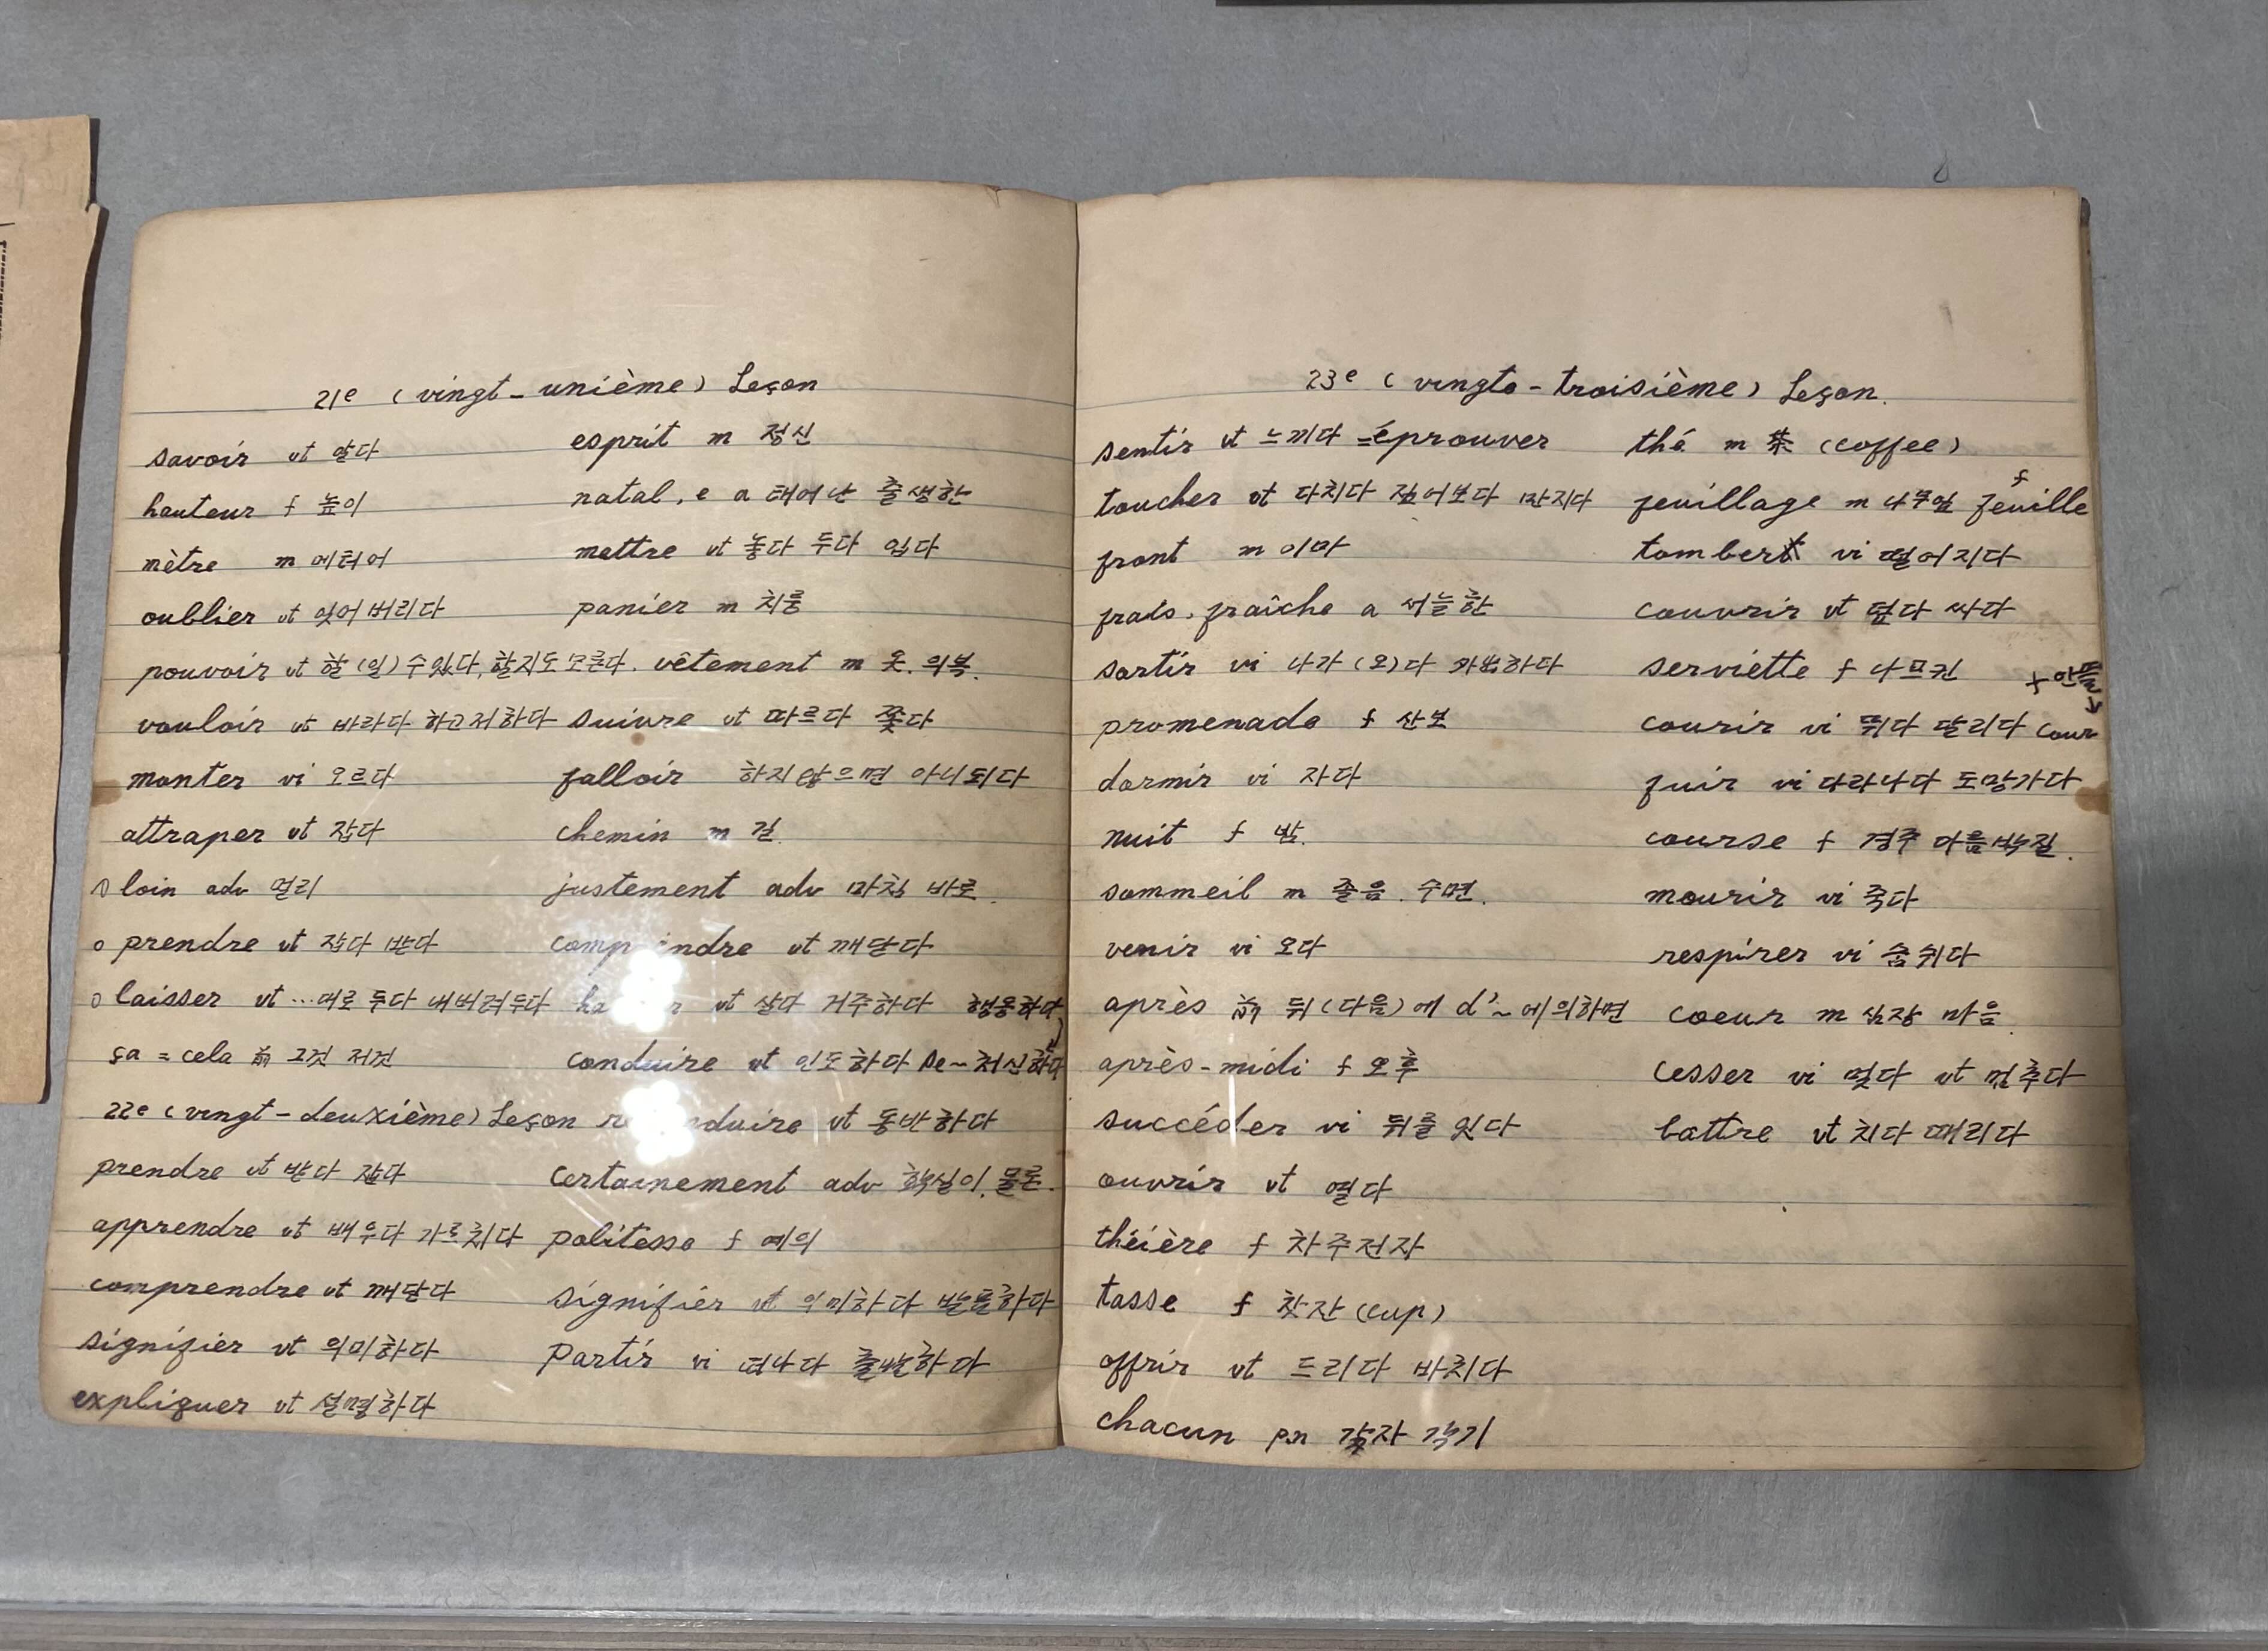 21e (vingt-unième) Leçon
savoir vt 알다
hauteur f 높이
mètre m 메터어
oublier vt 잊어버리다
pouvoir vt 할(일)수있다, 할지도 모른다.
vouloir vt 바라다 하고저하다
monter vi 오르다
attraper vt 잡다
loin adv 멀리
o prendre vt 잡다 받다
o laisser vt …대로 두다 내버려두다
ça = cela 그것 저것
22e (vingt-deuxième) Leçon
prendre vt 받다 잡다
apprendre vt 배우다 가르치다
comprendre vt 깨닫다
signifier vt 의미하다
expliquer vt 설명하다
esprit m 정신
natal, e a 태어난 출생한
mettre vt 놓다 두다 입다
panier m 치롱
vêtement m 옷. 의복.
suivre vt 따르다 쫓다
falloir 하지않으면 아니되다
chemin m 길.
justement adv 마침 바로.
comp endre vt 깨닫다
ha r vt 살다 거주하다 행동하다
conduire vt 인도하다 se~처신하다
r duire vt 동반하다
certainement adv 확실이, 물론.
politesse f 예의
signifier vt 의미하다 발표하다
partir vi 떠나다 출발하다
23e (vingto-troisième) Leçon.
sentir vt 느끼다 =éprouver
toucher vt 다치다 짚어보다 만지다
front m 이마
frais, fraîche a 서늘한
sortir vi 나가(오)다 외출하다
promenade f 산보
dormir vi 자다
nuit f 밤.
sommeil m 졸음. 수면.
venir vi 오다
après 前 뒤(다음)에 d'~에의하면
après-midi f 오후
succéder vi 뒤를 잇다
ouvrir vt 열다
théière f 차주전자
tasse f 찻잔 (cup)
offrir vt 드리다 바치다
chacun pn 각자 각기
thé m 茶 (coffee)
feuillage m 나무잎 feuille f
tomber vi 떨어지다
couvrir vt 덮다 싸다
serviette f 나프킨
courir vi 뛰다 달리다 cour 안뜰
fuir vi 다라나다 도망가다
course f 경주 다름박질.
mourir vi 죽다
respirer vi 숨쉬다
coeur m 심장 마음.
cesser vi 멎다 vt 멈추다
battre vt 치다 때리다